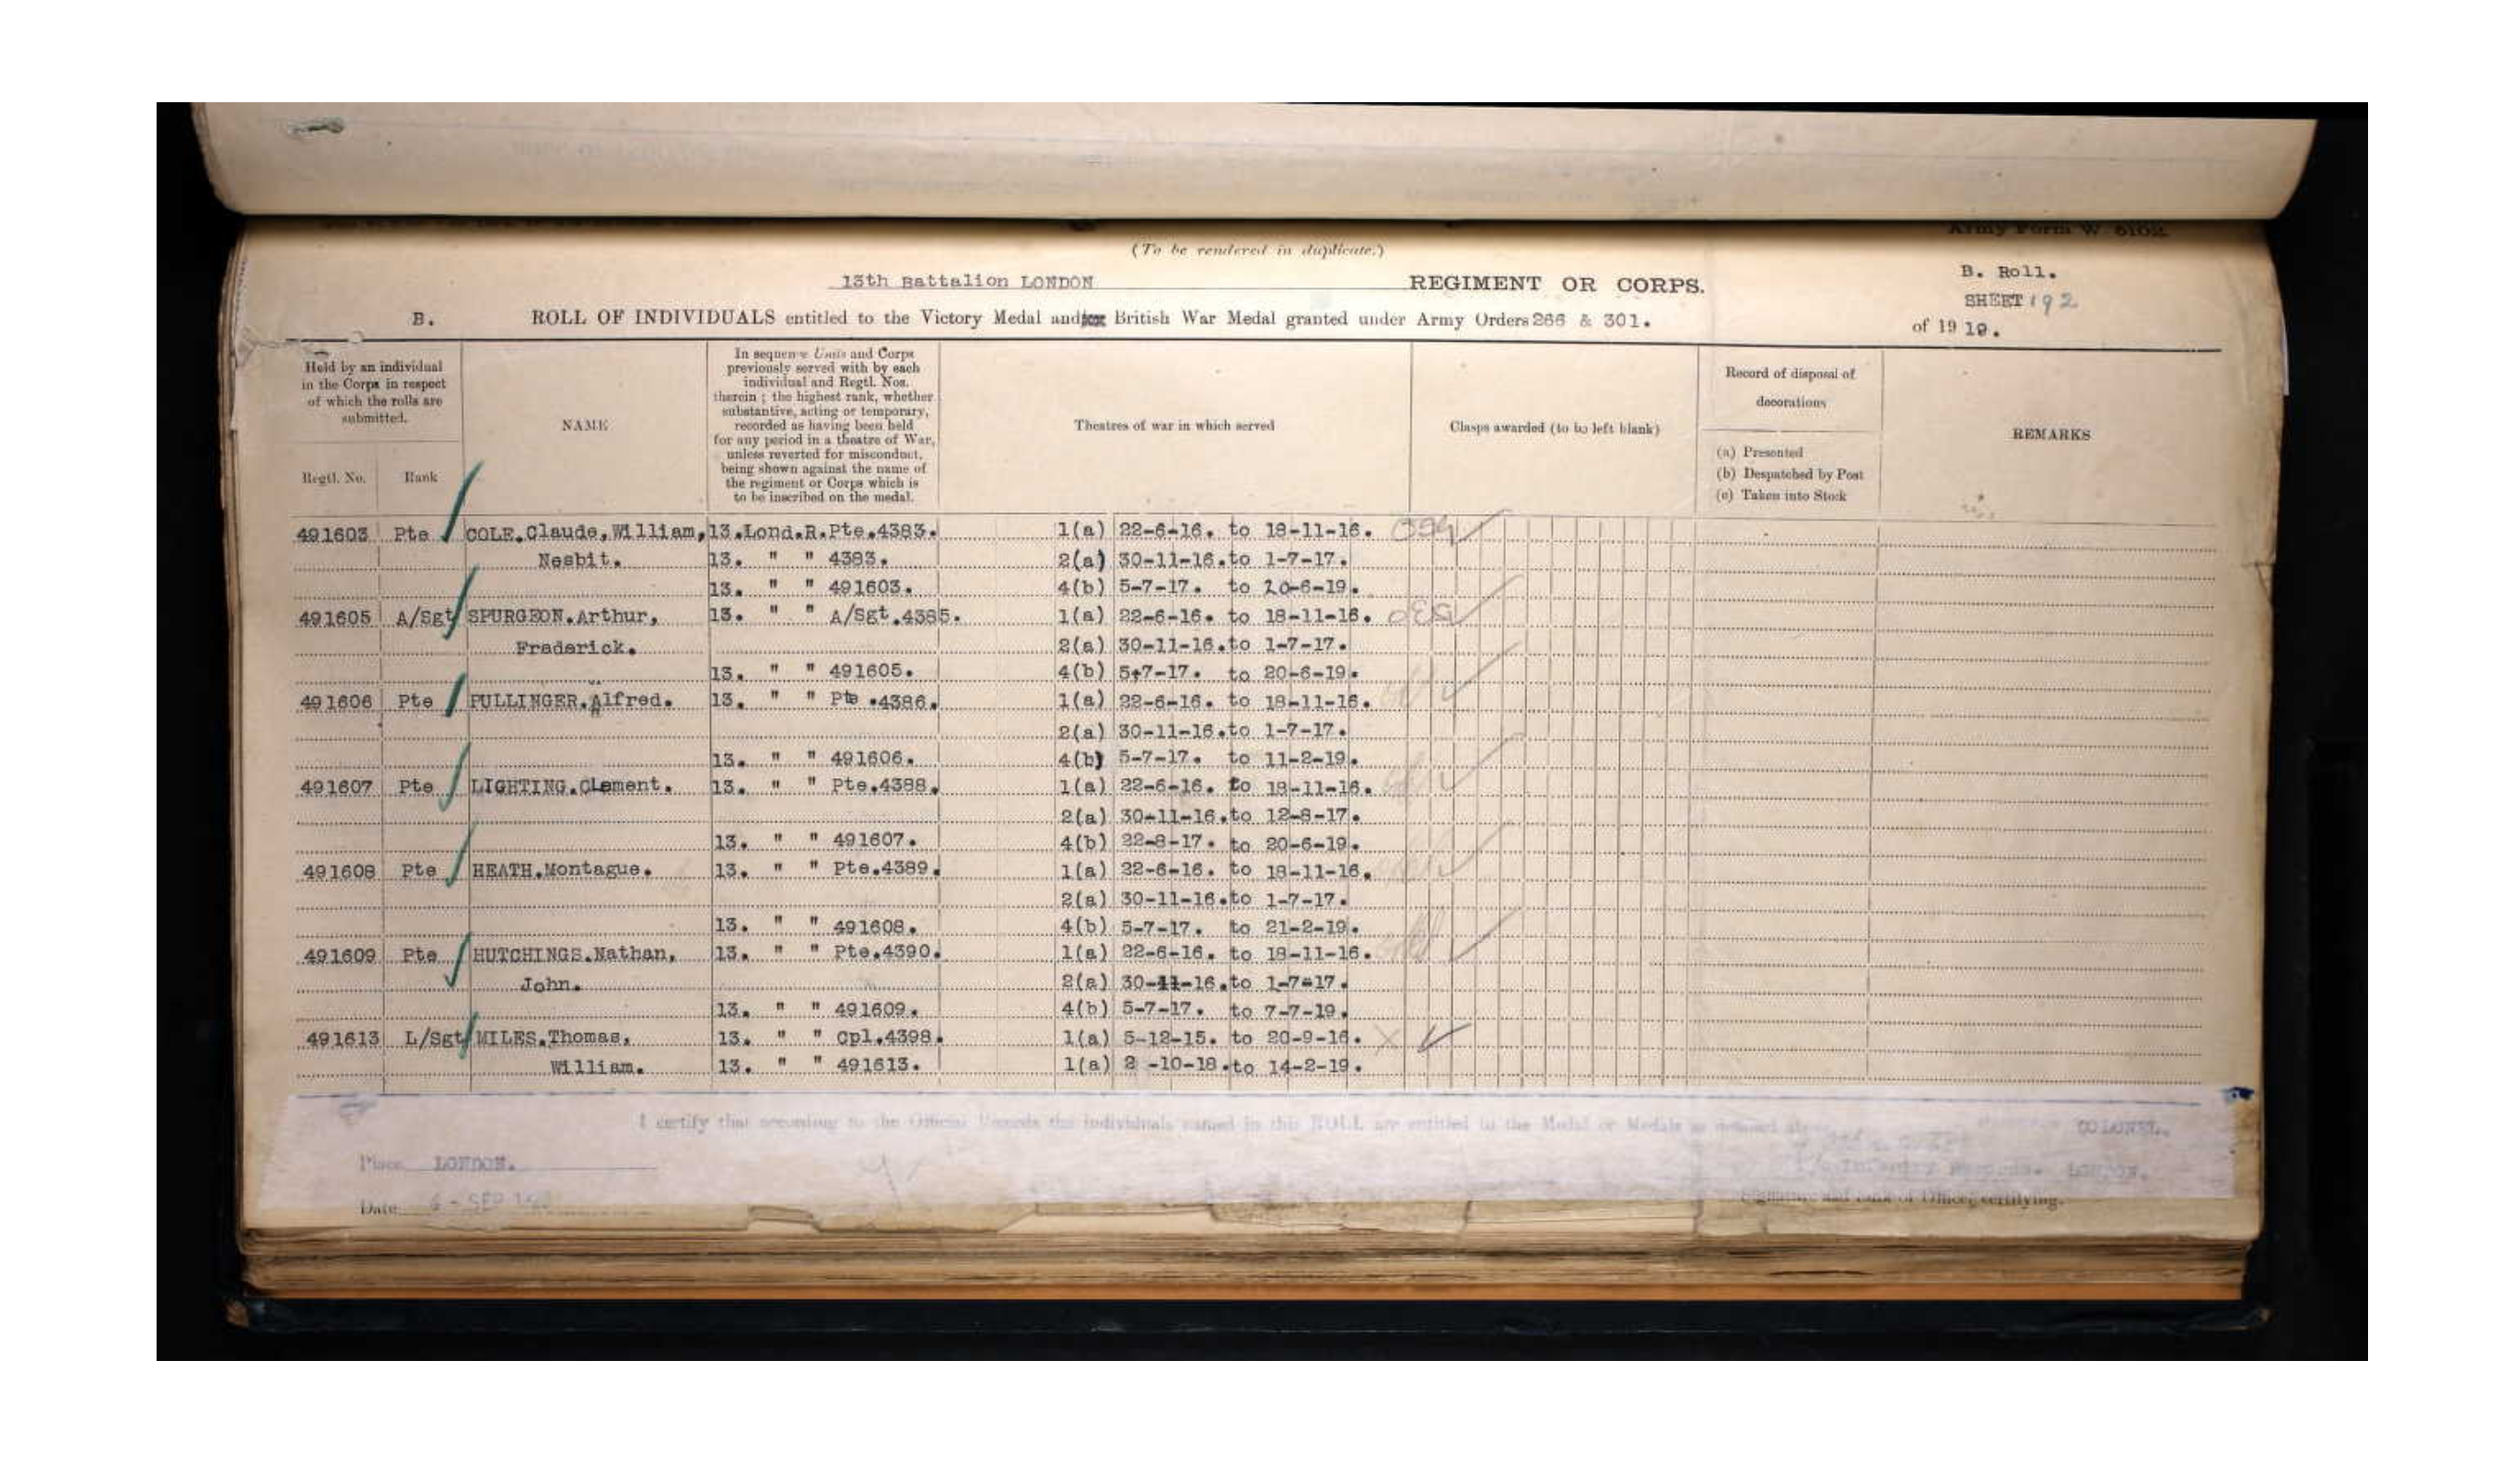 Army Form W. 5102.
(To be rendered in duplicate.)
13th Battalion LONDON REGIMENT OR CORPS.
B. Roll.
SHEET 192
of 1919.
B. ROLL OF INDIVIDUALS entitled to the Victory Medal and/or British War Medal granted under Army Orders 266 & 301.
Held by an individual
in the Corps in respect
of which the rolls are
submitted.
Regtl. No. Rank
NAME
In sequence Units and Corps
previously served with by each
individual and Regtl. Nos.
therein ; the highest rank, whether
substantive, acting or temporary,
recorded as having been held
for any period in a theatre of War,
unless reverted for misconduct,
being shown against the name of
the regiment or Corps which is
to be inscribed on the medal.
Theatres of war in which served
Clasps awarded (to be left blank)
Record of disposal of
decorations
(a) Presented
(b) Despatched by Post
(c) Taken into Stock
REMARKS
491603 Pte COLE.Claude,William, 13.Lond.R.Pte.4383. 1(a) 22-6-16. to 18-11-16.
Nesbit. 13. " " 4383. 2(a) 30-11-16.to 1-7-17.
13. " " 491603. 4(b) 5-7-17. to 20-6-19.
491605 A/Sgt SPURGEON.Arthur, 13. " " A/Sgt.4385. 1(a) 22-6-16. to 18-11-16.
Frederick. 2(a) 30-11-16.to 1-7-17.
13. " " 491605. 4(b) 5-7-17. to 20-6-19.
491606 Pte PULLINGER.Alfred. 13. " " Pte .4386. 1(a) 22-6-16. to 18-11-16.
2(a) 30-11-16.to 1-7-17.
13. " " 491606. 4(b) 5-7-17. to 11-2-19.
491607 Pte LIGHTING.Clement. 13. " " Pte.4388. 1(a) 22-6-16. to 18-11-16.
2(a) 30-11-16.to 12-8-17.
13. " " 491607. 4(b) 22-8-17. to 20-6-19.
491608 Pte HEATH.Montague. 13. " " Pte.4389. 1(a) 22-6-16. to 18-11-16.
2(a) 30-11-16.to 1-7-17.
13. " " 491608. 4(b) 5-7-17. to 21-2-19.
491609 Pte HUTCHINGS.Nathan, 13. " " Pte.4390. 1(a) 22-6-16. to 18-11-16.
John. 2(a) 30-11-16.to 1-7-17.
13. " " 491609. 4(b) 5-7-17. to 7-7-19.
491613 L/Sgt MILES.Thomas, 13. " " Cpl.4398. 1(a) 5-12-15. to 20-9-16.
William. 13. " " 491613. 1(a) 2 -10-18.to 14-2-19.
I certify that according to the Official Records the individuals named in this ROLL are entitled to the Medal or Medals as detailed
COLONEL.
Place LONDON. i/c Infantry Records. LONDON.
Date 4 - SEP Signature and rank of Officer certifying.